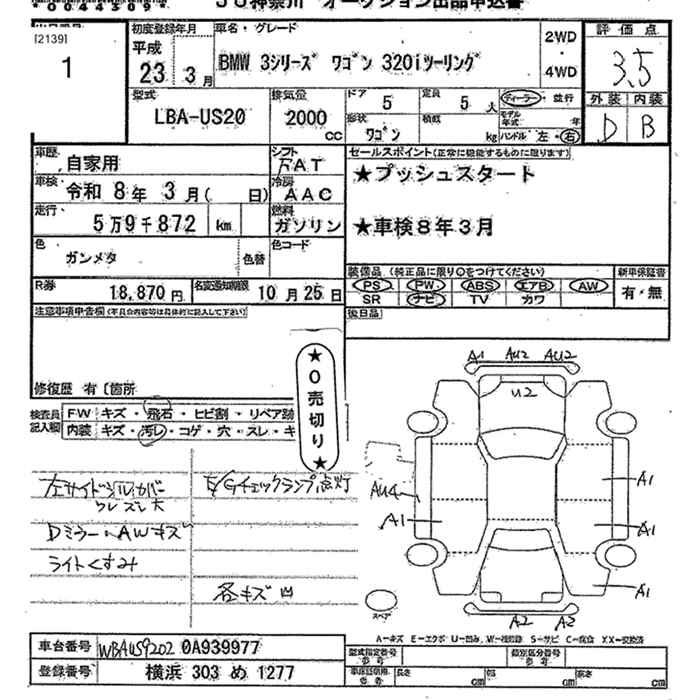 *00443094*
JU神奈川 オークション出品申込書
[2139]
1
初度登録年月
平成
23 3月
車名・グレード
BMW 3シリーズ ワゴン 320iツーリング
2WD
・
4WD
評価点
3.5
外装 内装
D B
型式
LBA-US20
排気量
2000
CC
ドア
5
定員
5人
ディーラー・並行
形状
ワゴン
積載
kg
モデル年式 年
ハンドル 左・右
車歴
自家用
シフト
FAT
車検
令和 8年 3月( 日)
冷房
AAC
走行
5万9千872 km
燃料
ガソリン
色
ガンメタ
色替
色コード
R券
18,870円
名変通知期限
10月25日
セールスポイント(正常に機能するものに限ります)
★プッシュスタート
★車検8年3月
装備品(純正品に限り○をつけてください)
新車保証書
PS PW ABS エアB AW
SR ナビ TV カワ
有・無
後日品
注意事項申告欄(車両内容等は具体的に記入して下さい)
修復歴 有〔箇所
★0売切り★
検査員記入欄
FW キズ・飛石・ヒビ割・リペア跡
内装 キズ・汚レ・コゲ・穴・スレ・キ
ワレ ズレ 大
E/Gチェックランプ点灯
Dミラー、AWキズ
ライトくすみ
各キズ凹
A1 AU2 AU2
U2
AU4
A1
A1
A1
A1
A2 A2
スペア
A−キズ E−エクボ U−凹み W−補修跡 S−サビ C−腐食 XX−交換済
車台番号
WBAUS9202 0A939977
登録番号
横浜 303 め 1277
型式指定番号
参考
類別区分番号
参考
車庫証明用
参考
長さ cm
幅 cm
高さ cm